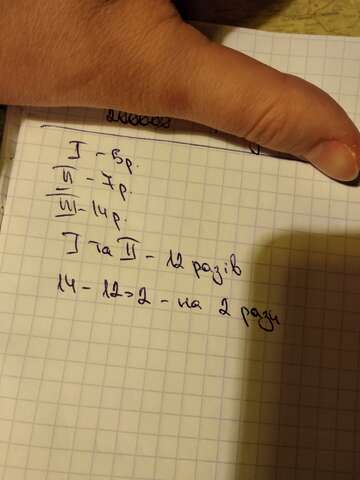 I - 5р.
II - 7р.
III - 14р.
I та II - 12 разів
14 - 12 = 2 - на 2 рази